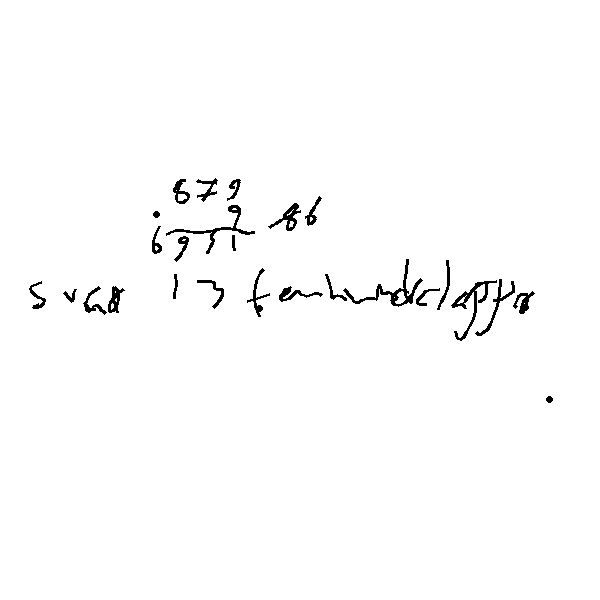 879
9 86
6951
svar 13 femhundralappar